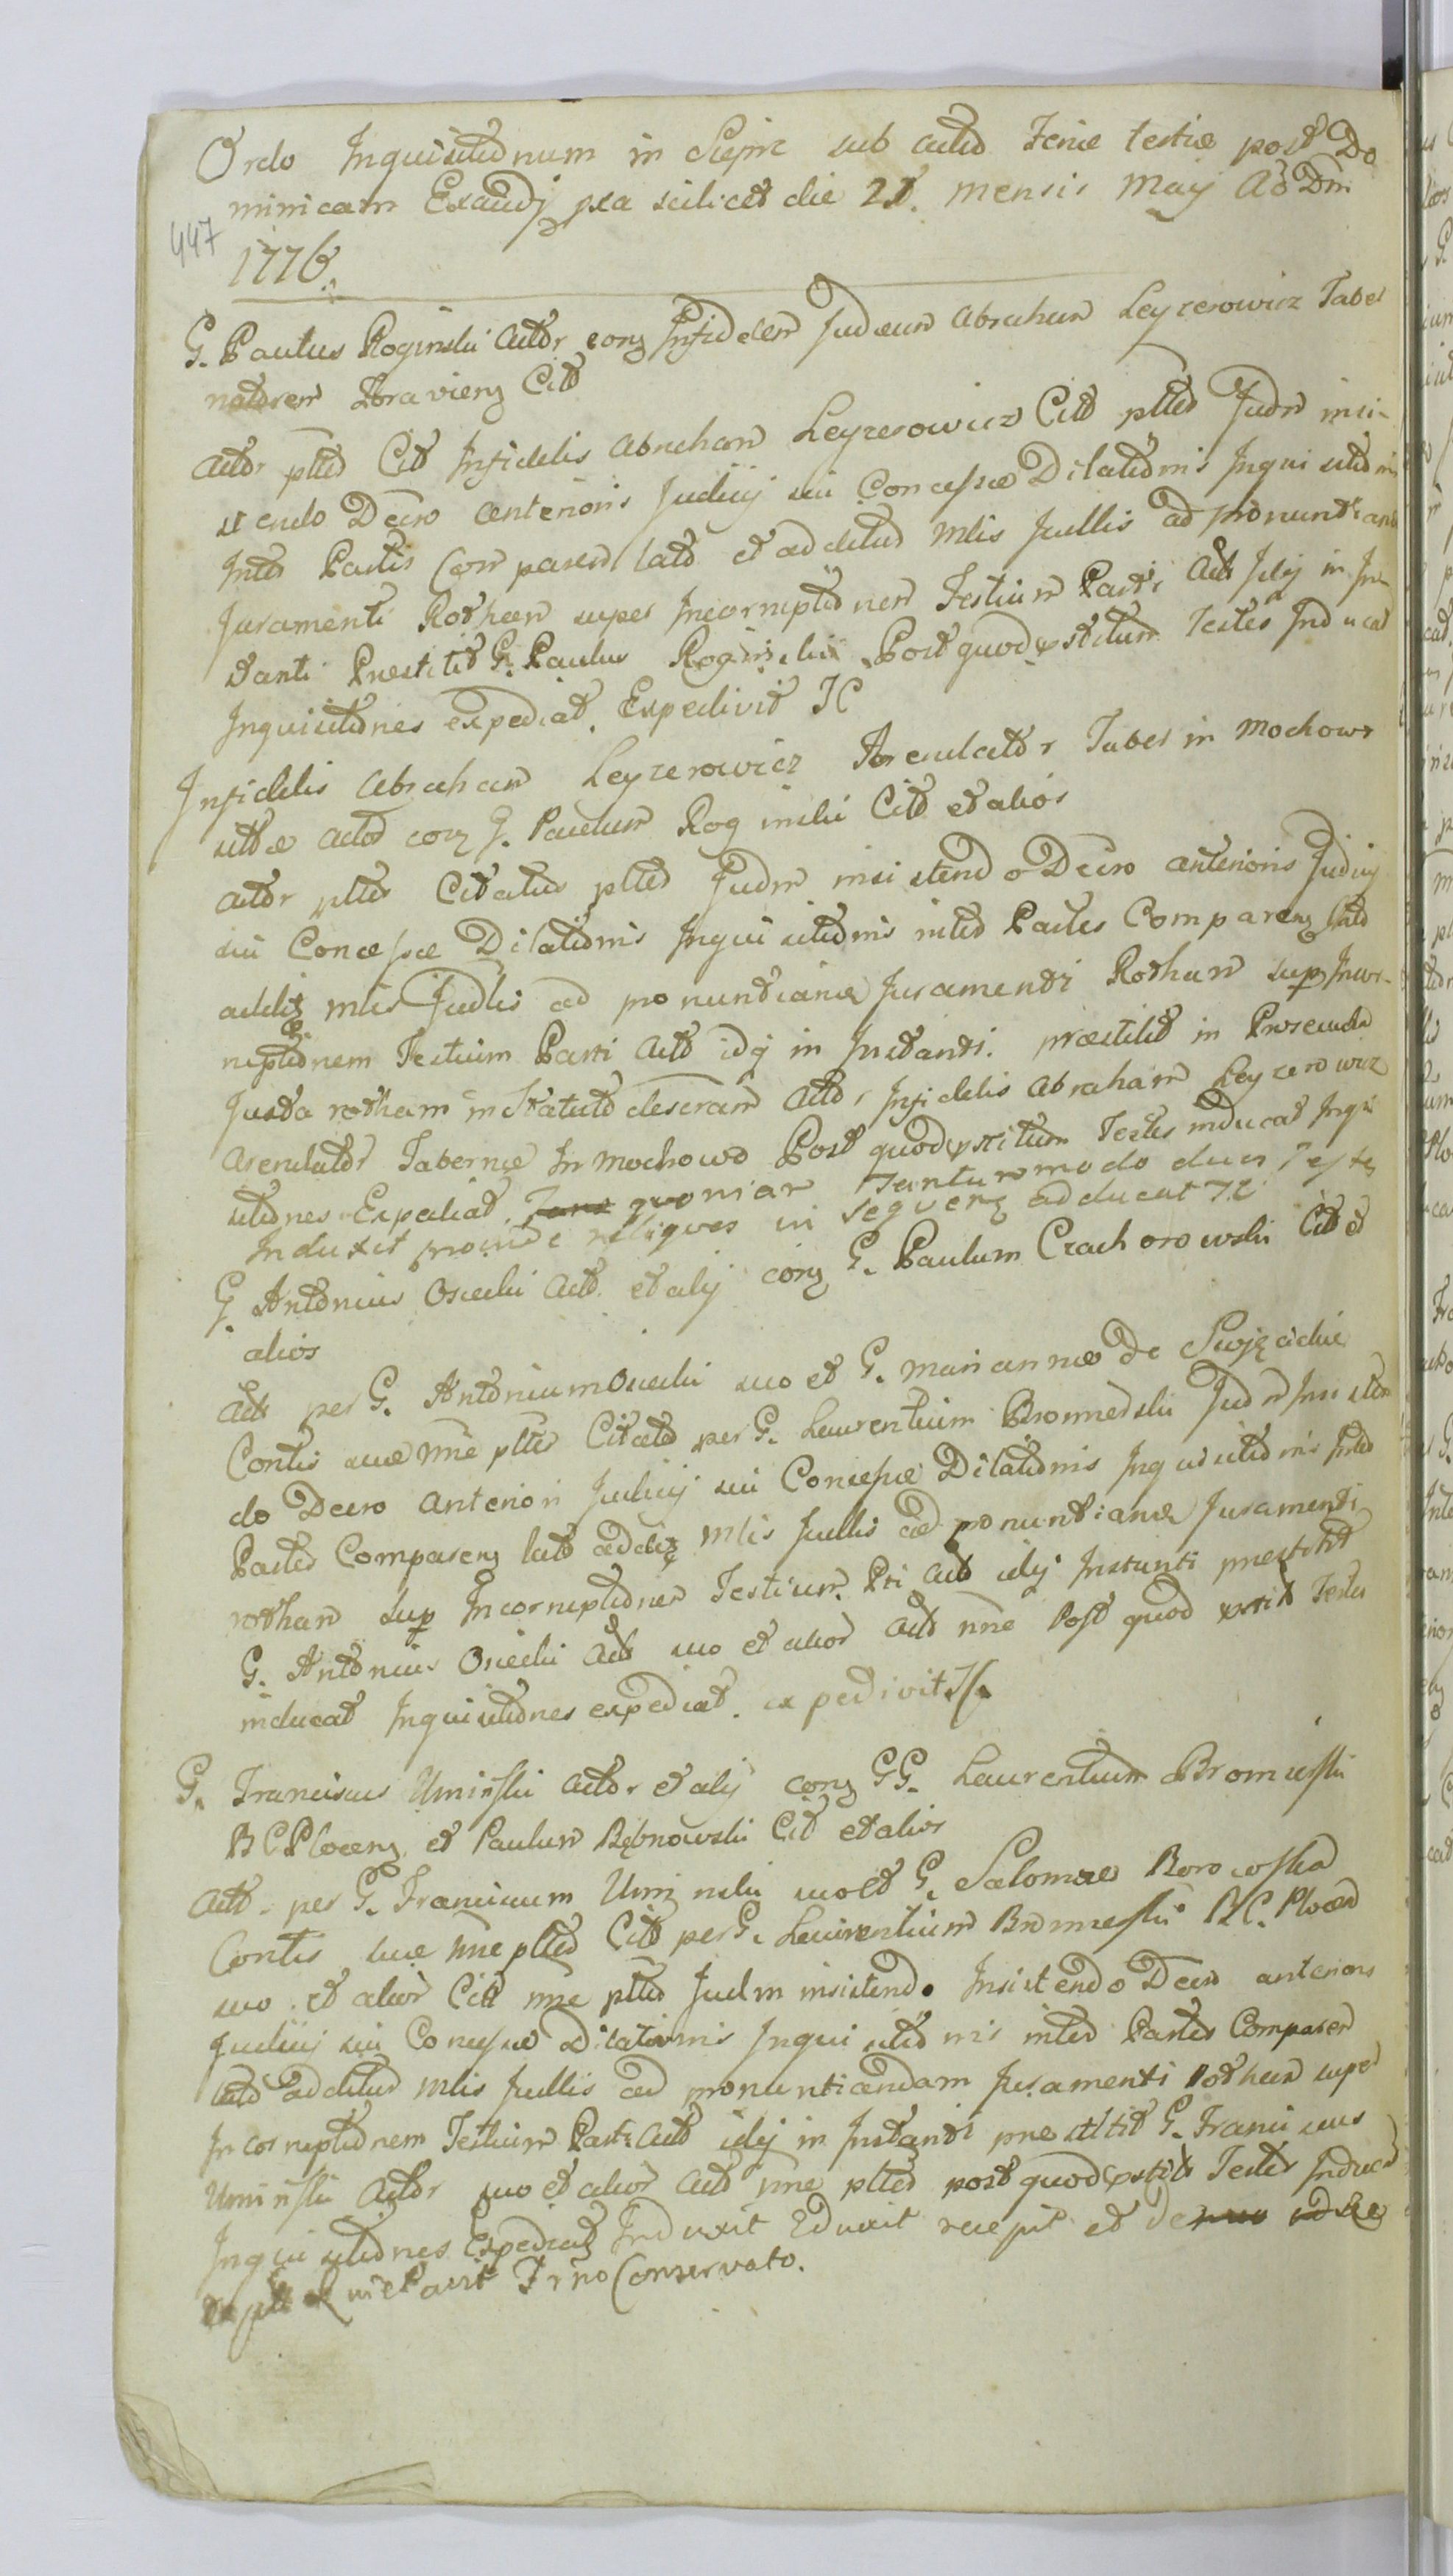 Ordo Inquisitionum in Sieprc sub actu Feriæ tertiæ post Do
minicam Exaudi pxa scilicet die 21. mensis Maij Ao Dni
447
1776.
G. Paulus Roginski Actor conz Infidelem Judæum Abraham Leyzerowicz Taber
natorem Citt
Actor pltes Citt Infidelis Abraham Leyzerowicz Citt pltes Judm insi-
stendo Decro anterioris Judicij sui Concessæ Dilationis Inquisitionis
Inter Partis Comparen lato et additus Mlis Jullis ad pronuntiand
Juramenti Rotham super Incorruptionem Testium Parti Act Idq in In-
stanti Præstitit G. Paulus Roginski Post quod pstitum Testes Inducat
Inquisitiones expediat. Expedivit JC
Infidelis Abraham Leyzerowicz Arendator Taber in Mochowo
sitæ Actor conz G. Paulum Roginski Citt et alios
Actor pltes Citatus pltes Judm insistendo Decro anterioris Judicij
sui Concessæ Dilationis Inquisitionis inter Partes Comparenz lato
additz Mlis Judlis ad pronuntiand Juramenti Rotham sup Incor-
ruptionem Testium Parti Act idq in Instanti. præstitit in
Juxta rotham in Statuto descram Actor Infidelis Abraham Leyzerowicz
Arendator Tabernæ In Mochowo Post quod pstitum Testes inducat Inqui
sitiones Expediat. quoniam Tantummodo duos Testes
Induxit proinde reliquos in sequenz adducat JC
G. Antonius Osiecki Act et alij conz G. Paulum Czachorowski Citt et
alios
Act per G. Antonium Osiecki suo et G. Mariannæ de Swięcickie
Contis suæ nne pltes Citato per G. Laurentium Bromierski Judm Insisten
do Decro anteriori Judicij sui Concessæ Dilationis Inquisitionis Inter
Partes Comparenz lato additz Mlis Jullis ad pronuntiand Juramenti
rotham sup Incorruptionem Testium. Pti Act idq Instanti præstitit
G. Antonius Osiecki Act suo et alior Act nne Post quod pstit Testes
inducat Inquisitiones expediat. expedivit JC.
G. Franciscus Uminski Actor et alij conz GG. Laurentium Bromierski
B C Plocenz et Paulum Rębnowski Citt et alios
Act. per G. Franciscum Uminski suo et G. Salomeæ Borowska
Contis suæ nne pltes Citt per G. Laurentium Bromierski B C. Plocen
suo et alior Citt nne pltes Judm insistendo Insistendo Decro anterioris
Judicij sui Concessæ Dilationis Inquisitionis inter Partes Comparen
lato additus Mlis Jullis ad pronuntiandam Juramenti rotham super
Incorruptionem Testium Parti Act idq in Instanti præstitit G. Franciscus
Uminski Actor suo et alior Act nne pltes post quod pstit Testes Inducat
Inquisitiones Expediat Induxit Eduxit recepit et
Trno Conservato.